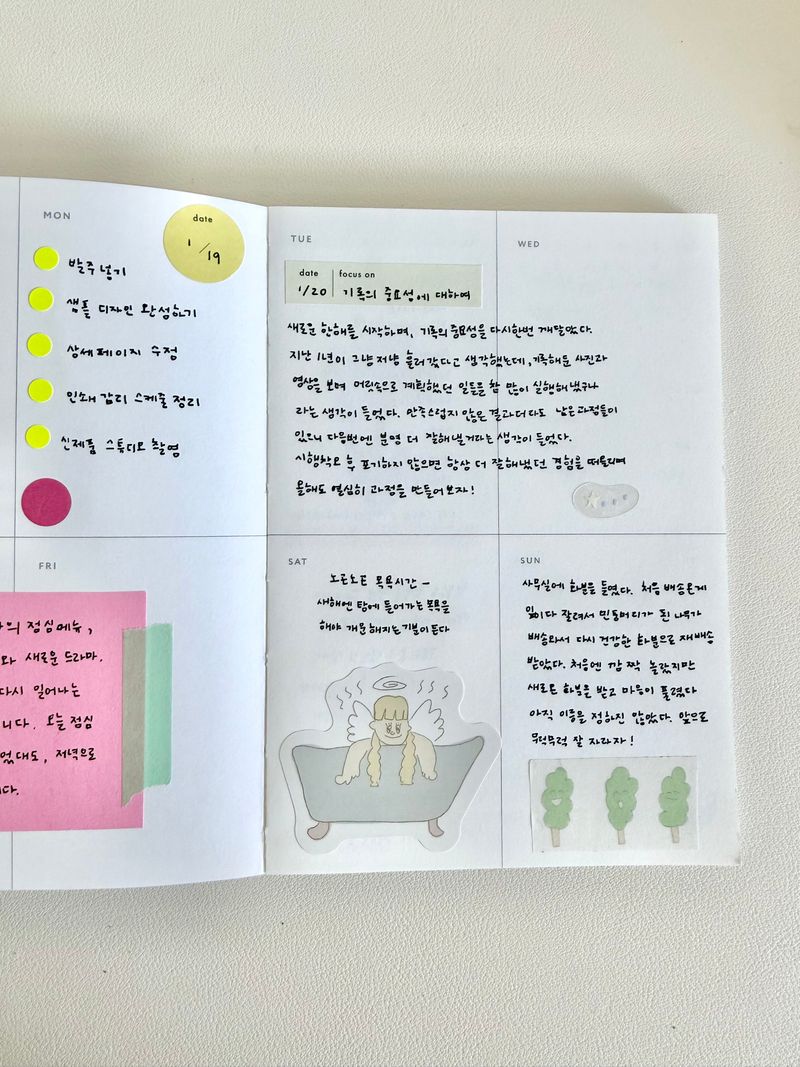 MON
date
1/19
발주 넣기
샘플 디자인 완성하기
상세페이지 수정
인쇄 감리 스케줄 정리
신제품 스튜디오 촬영
TUE
date
focus on
1/20
기록의 중요성에 대하여
새로운 한해를 시작하며, 기록의 중요성을 다시한번 깨달았다.
지난 1년이 그냥저냥 흘러갔다고 생각했는데, 기록해둔 사진과
영상을 보며 머릿속으로 계획했던 일들을 참 많이 실행해냈구나
라는 생각이 들었다. 만족스럽지 않은 결과더라도 남은과정들이
있으니 다음번엔 분명 더 잘해낼거라는 생각이 들었다.
시행착오 후 포기하지 않으면 항상 더 잘해냈던 경험을 떠올리며
올해도 열심히 과정을 만들어보자!
WED
FRI
의 점심메뉴,
와 새로운 드라마.
다시 일어나는
니다. 오늘 점심
었대도, 저녁으로
다.
SAT
노곤노곤 목욕시간 -
새해엔 탕에 들어가는 목욕을
해야 개운해지는 기분이 든다
SUN
사무실에 화분을 들였다. 처음 배송온게
잎이 다 잘려서 민둥머리가 된 나무가
배송와서 다시 건강한 화분으로 재배송
받았다. 처음엔 깜짝 놀랐지만
새로운 화분을 받고 마음이 풀렸다
아직 이름을 정하진 않았다. 앞으로
무럭무럭 잘 자라자!